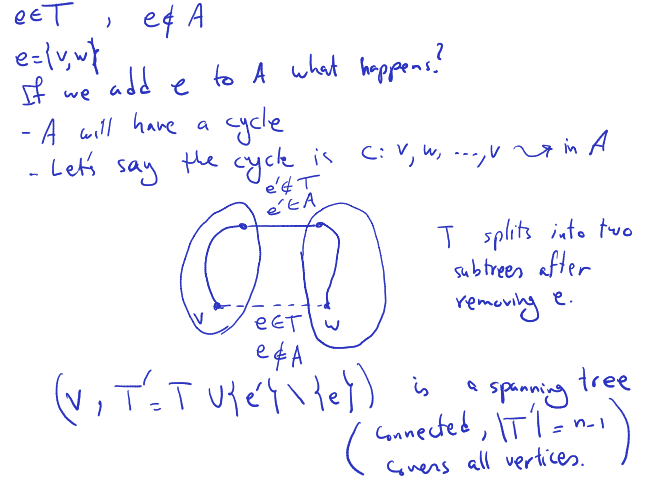 e∈T , e∉A
e={v,w}
If we add e to A what happens?
- A will have a cycle
- Let's say the cycle is C: v, w, ..., v ⤳ in A
e'∉T
e'∈A
T splits into two
subtrees after
removing e.
v
e∈T
w
e∉A
(V, T' = T ∪{e'}\{e}) is a spanning tree
(connected, |T'| = n-1
covers all vertices.)